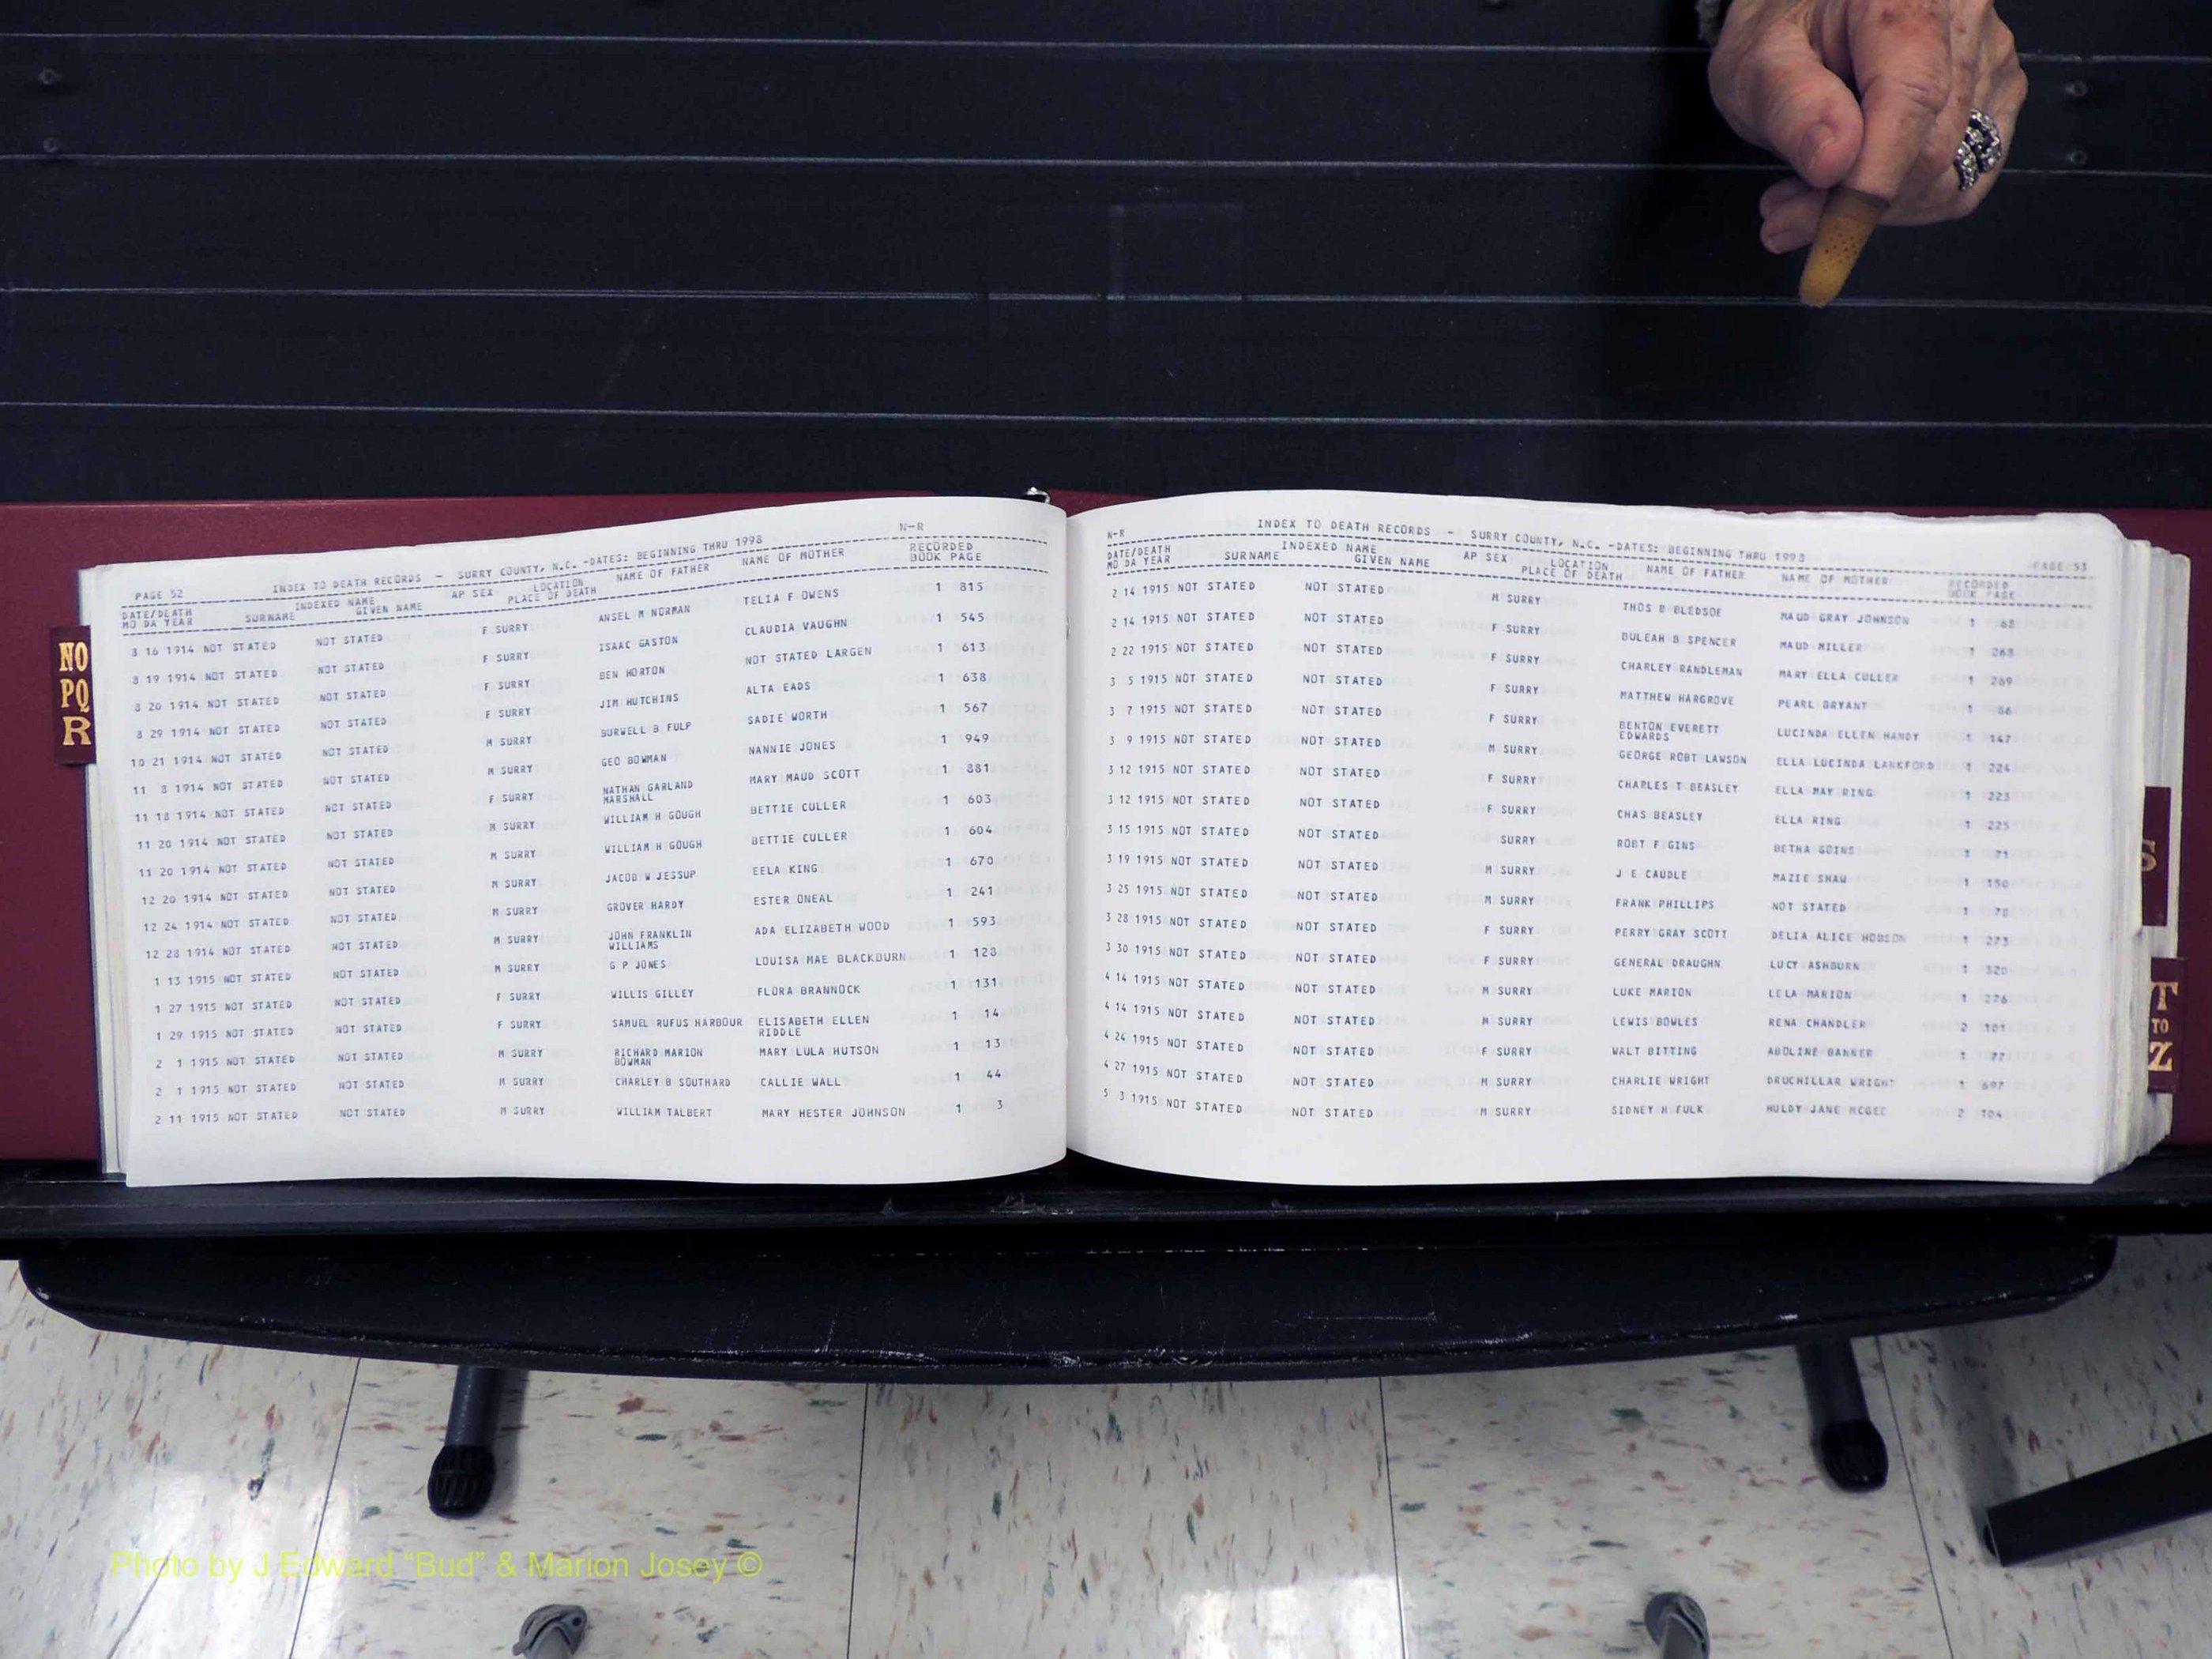 N-R
PAGE 52 INDEX TO DEATH RECORDS - SURRY COUNTY, N.C. -DATES: BEGINNING THRU 1998
DATE/DEATH INDEXED NAME LOCATION RECORDED
MO DA YEAR SURNAME GIVEN NAME AP SEX PLACE OF DEATH NAME OF FATHER NAME OF MOTHER BOOK PAGE
8 16 1914 NOT STATED NOT STATED F SURRY ANSEL M NORMAN TELIA F OWENS 1 815
8 19 1914 NOT STATED NOT STATED F SURRY ISAAC GASTON CLAUDIA VAUGHN 1 545
8 20 1914 NOT STATED NOT STATED F SURRY BEN HORTON NOT STATED LARGEN 1 613
8 29 1914 NOT STATED NOT STATED F SURRY JIM HUTCHINS ALTA EADS 1 638
10 21 1914 NOT STATED NOT STATED M SURRY BURWELL B FULP SADIE WORTH 1 567
11 3 1914 NOT STATED NOT STATED M SURRY GEO BOWMAN NANNIE JONES 1 949
11 18 1914 NOT STATED NOT STATED F SURRY NATHAN GARLAND MARY MAUD SCOTT 1 881
MARSHALL
11 20 1914 NOT STATED NOT STATED M SURRY WILLIAM H GOUGH BETTIE CULLER 1 603
11 20 1914 NOT STATED NOT STATED M SURRY WILLIAM H GOUGH BETTIE CULLER 1 604
12 20 1914 NOT STATED NOT STATED M SURRY JACOB W JESSUP EELA KING 1 670
12 24 1914 NOT STATED NOT STATED M SURRY GROVER HARDY ESTER ONEAL 1 241
12 28 1914 NOT STATED NOT STATED M SURRY JOHN FRANKLIN ADA ELIZABETH WOOD 1 593
WILLIAMS
1 13 1915 NOT STATED NOT STATED M SURRY G P JONES LOUISA MAE BLACKBURN 1 128
1 27 1915 NOT STATED NOT STATED F SURRY WILLIS GILLEY FLORA BRANNOCK 1 131
1 29 1915 NOT STATED NOT STATED F SURRY SAMUEL RUFUS HARBOUR ELISABETH ELLEN 1 14
RIDDLE
2 1 1915 NOT STATED NOT STATED M SURRY RICHARD MARION MARY LULA HUTSON 1 13
BOWMAN
2 1 1915 NOT STATED NOT STATED M SURRY CHARLEY B SOUTHARD CALLIE WALL 1 44
2 11 1915 NOT STATED NOT STATED M SURRY WILLIAM TALBERT MARY HESTER JOHNSON 1 3
N-R INDEX TO DEATH RECORDS - SURRY COUNTY, N.C. -DATES: BEGINNING THRU 1998 PAGE 53
DATE/DEATH INDEXED NAME LOCATION RECORDED
MO DA YEAR SURNAME GIVEN NAME AP SEX PLACE OF DEATH NAME OF FATHER NAME OF MOTHER BOOK PAGE
2 14 1915 NOT STATED NOT STATED M SURRY THOS B BLEDSOE MAUD GRAY JOHNSON 1 68
2 14 1915 NOT STATED NOT STATED F SURRY BULEAH B SPENCER MAUD MILLER 1 268
2 22 1915 NOT STATED NOT STATED F SURRY CHARLEY RANDLEMAN MARY ELLA CULLER 1 269
3 5 1915 NOT STATED NOT STATED F SURRY MATTHEW HARGROVE PEARL BRYANT 1 86
3 7 1915 NOT STATED NOT STATED F SURRY BENTON EVERETT LUCINDA ELLEN HANDY 1 147
EDWARDS
3 9 1915 NOT STATED NOT STATED M SURRY GEORGE ROBT LAWSON ELLA LUCINDA LANKFORD 1 224
3 12 1915 NOT STATED NOT STATED F SURRY CHARLES T BEASLEY ELLA MAY RING 1 223
3 12 1915 NOT STATED NOT STATED F SURRY CHAS BEASLEY ELLA RING 1 225
3 15 1915 NOT STATED NOT STATED SURRY ROBT F GINS BETHA GOINS 1 71
3 19 1915 NOT STATED NOT STATED M SURRY J E CAUDLE MAZIE SHAW 1 150
3 25 1915 NOT STATED NOT STATED M SURRY FRANK PHILLIPS NOT STATED 1 78
3 28 1915 NOT STATED NOT STATED F SURRY PERRY GRAY SCOTT DELIA ALICE HOBSON 1 273
3 30 1915 NOT STATED NOT STATED F SURRY GENERAL DRAUGHN LUCY ASHBURN 1 320
4 14 1915 NOT STATED NOT STATED M SURRY LUKE MARION LELA MARION 1 276
4 14 1915 NOT STATED NOT STATED M SURRY LEWIS BOWLES RENA CHANDLER 2 101
4 24 1915 NOT STATED NOT STATED F SURRY WALT BITTING ABOLINE BANNER 1 77
4 27 1915 NOT STATED NOT STATED M SURRY CHARLIE WRIGHT DRUCHILLAR WRIGHT 1 697
5 3 1915 NOT STATED NOT STATED M SURRY SIDNEY H FULK HULDY JANE MCGEE 2 104
NO
PQ
R
S
T
TO
Z
Photo by J Edward "Bud" & Marion Josey ©